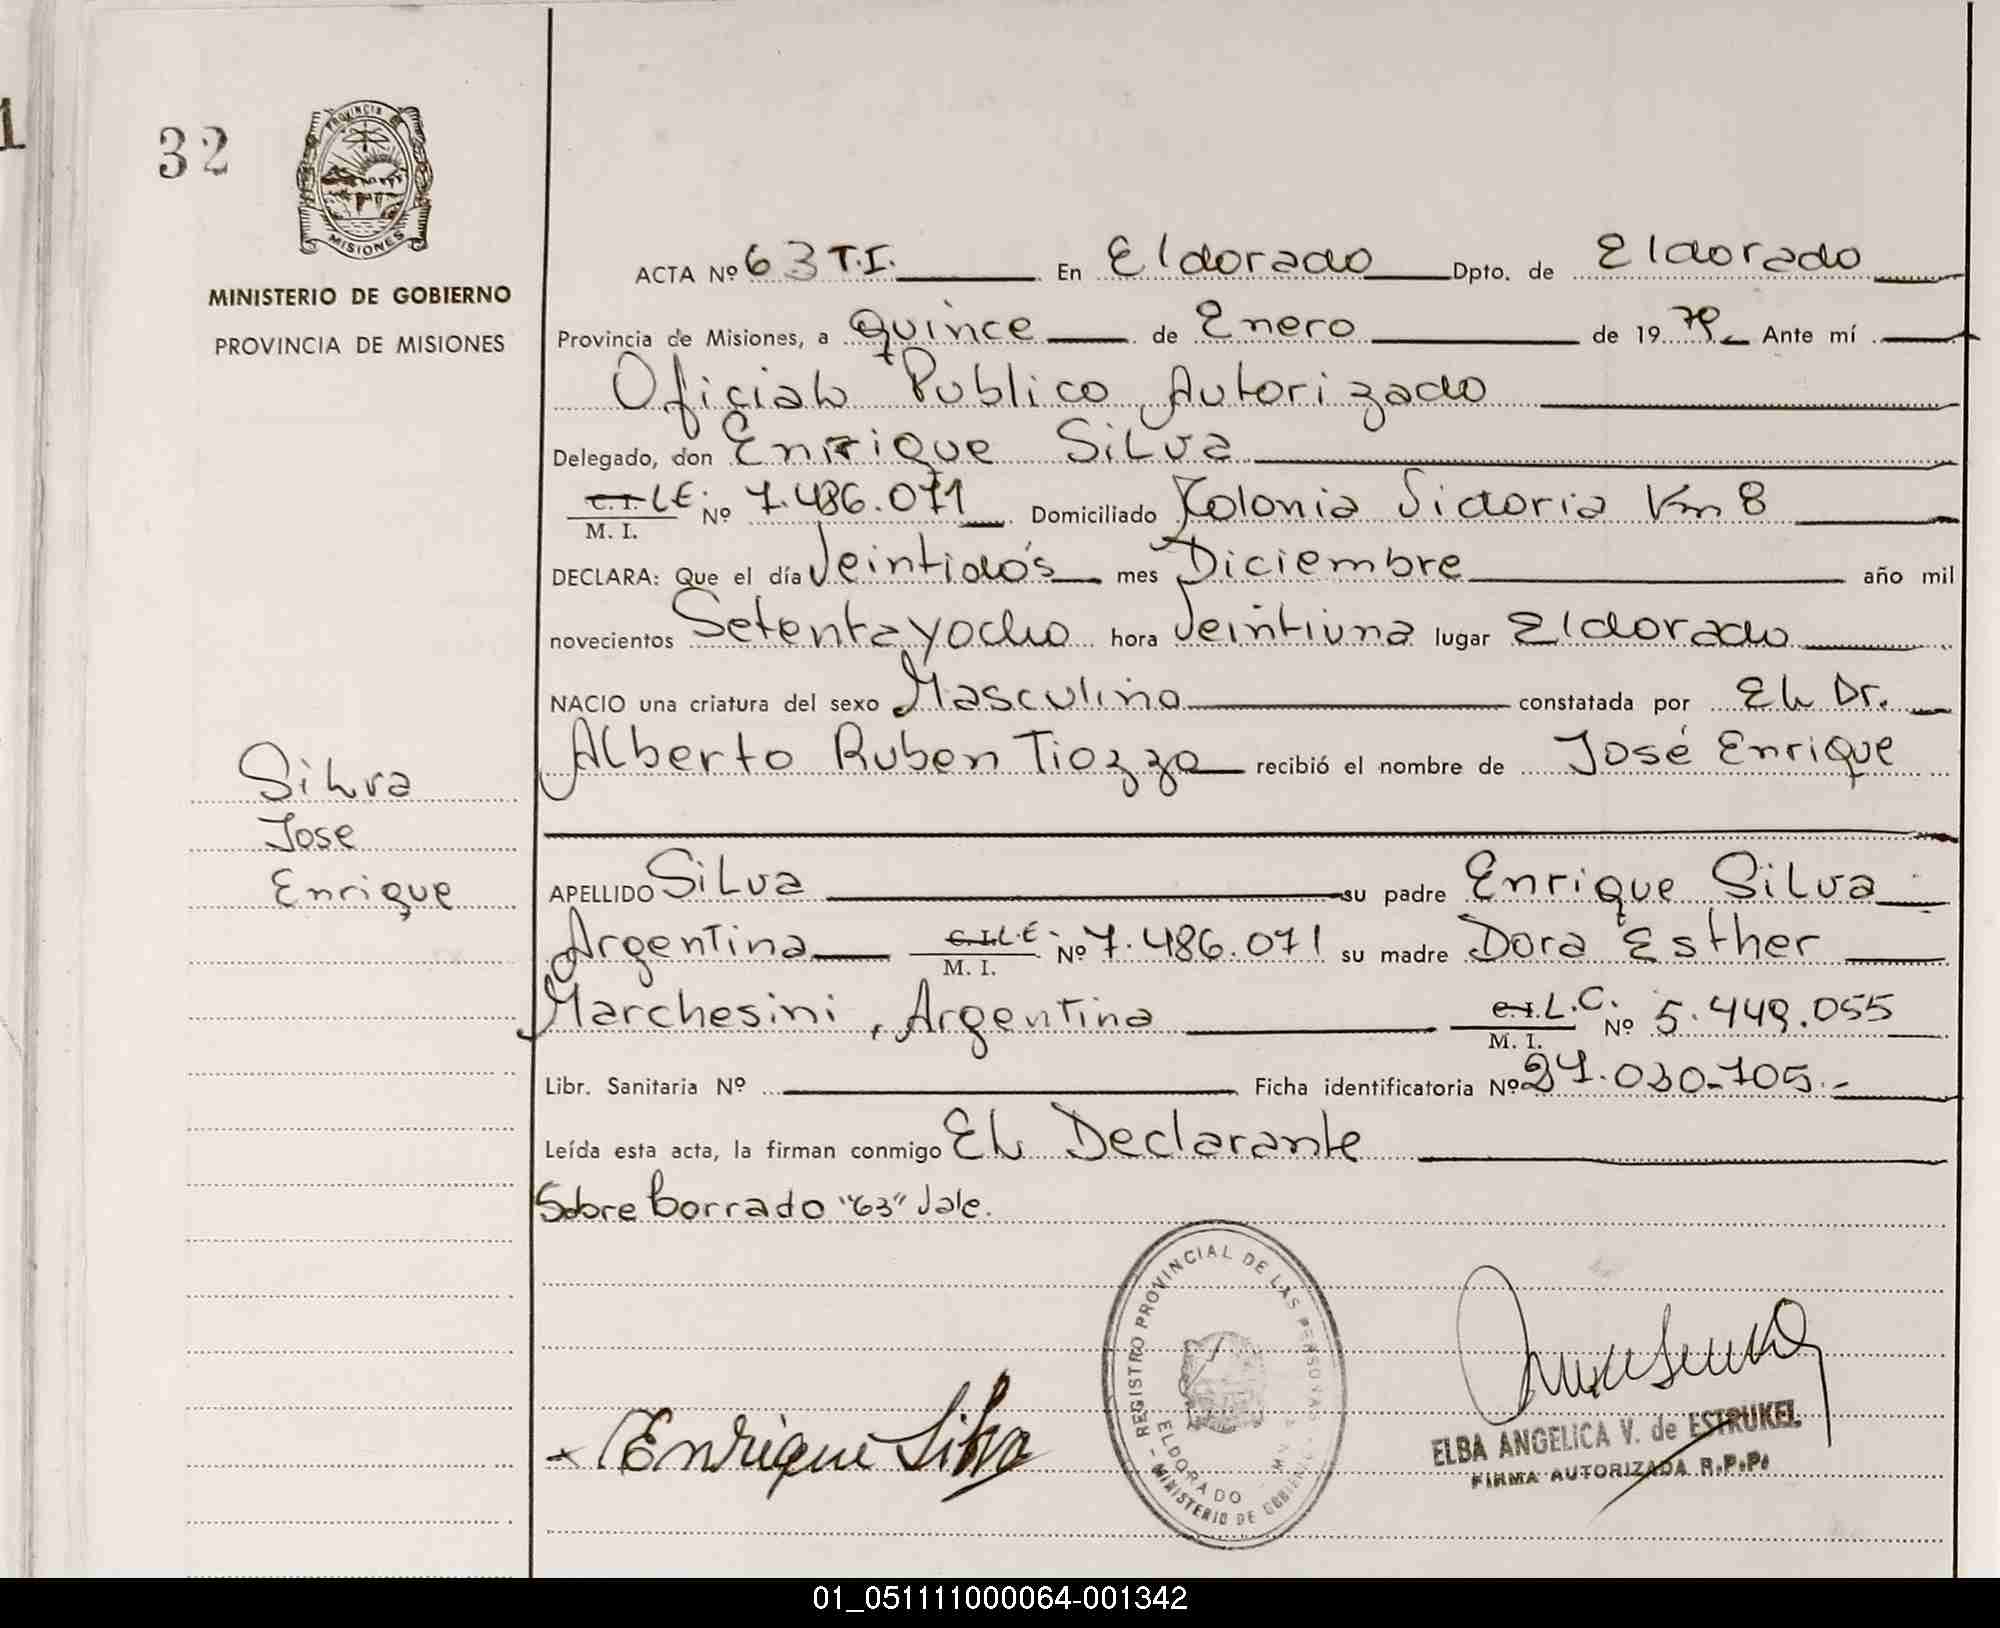 1
32
PROVINCIA DE
MISIONES
MINISTERIO DE GOBIERNO
PROVINCIA DE MISIONES
ACTA Nº 63 T.I. En Eldorado Dpto. de Eldorado
Provincia de Misiones, a quince de Enero de 1979 Ante mí
Oficial Publico Autorizado
Delegado, don Enrique Silva
C.I. L.E. Nº 7.486.071 Domiciliado Kolonia Victoria Km 8
M. I.
DECLARA: Que el día Veintidós mes Diciembre año mil
novecientos Setentayocho hora Veintiuna lugar Eldorado
NACIO una criatura del sexo Masculino constatada por El Dr.
Alberto Ruben Tiozzo recibió el nombre de José Enrique
Silva
Jose
Enrique
APELLIDO Silva su padre Enrique Silva
Argentina C.I. L.E. Nº 7.486.071 su madre Dora Esther
M. I.
Marchesini, Argentina C.I. L.C. Nº 5.449.055
M. I.
Libr. Sanitaria Nº Ficha identificatoria Nº 27.030.705.-
Leída esta acta, la firman conmigo El Declarante
Sobre borrado "63" Vale.
REGISTRO PROVINCIAL DE LAS PERSONAS
ELDORADO
MINISTERIO DE GOBIERNO
Enrique Silva
ELBA ANGELICA V. de ESTRUKEL
FIRMA AUTORIZADA R.P.P.
01_051111000064-001342